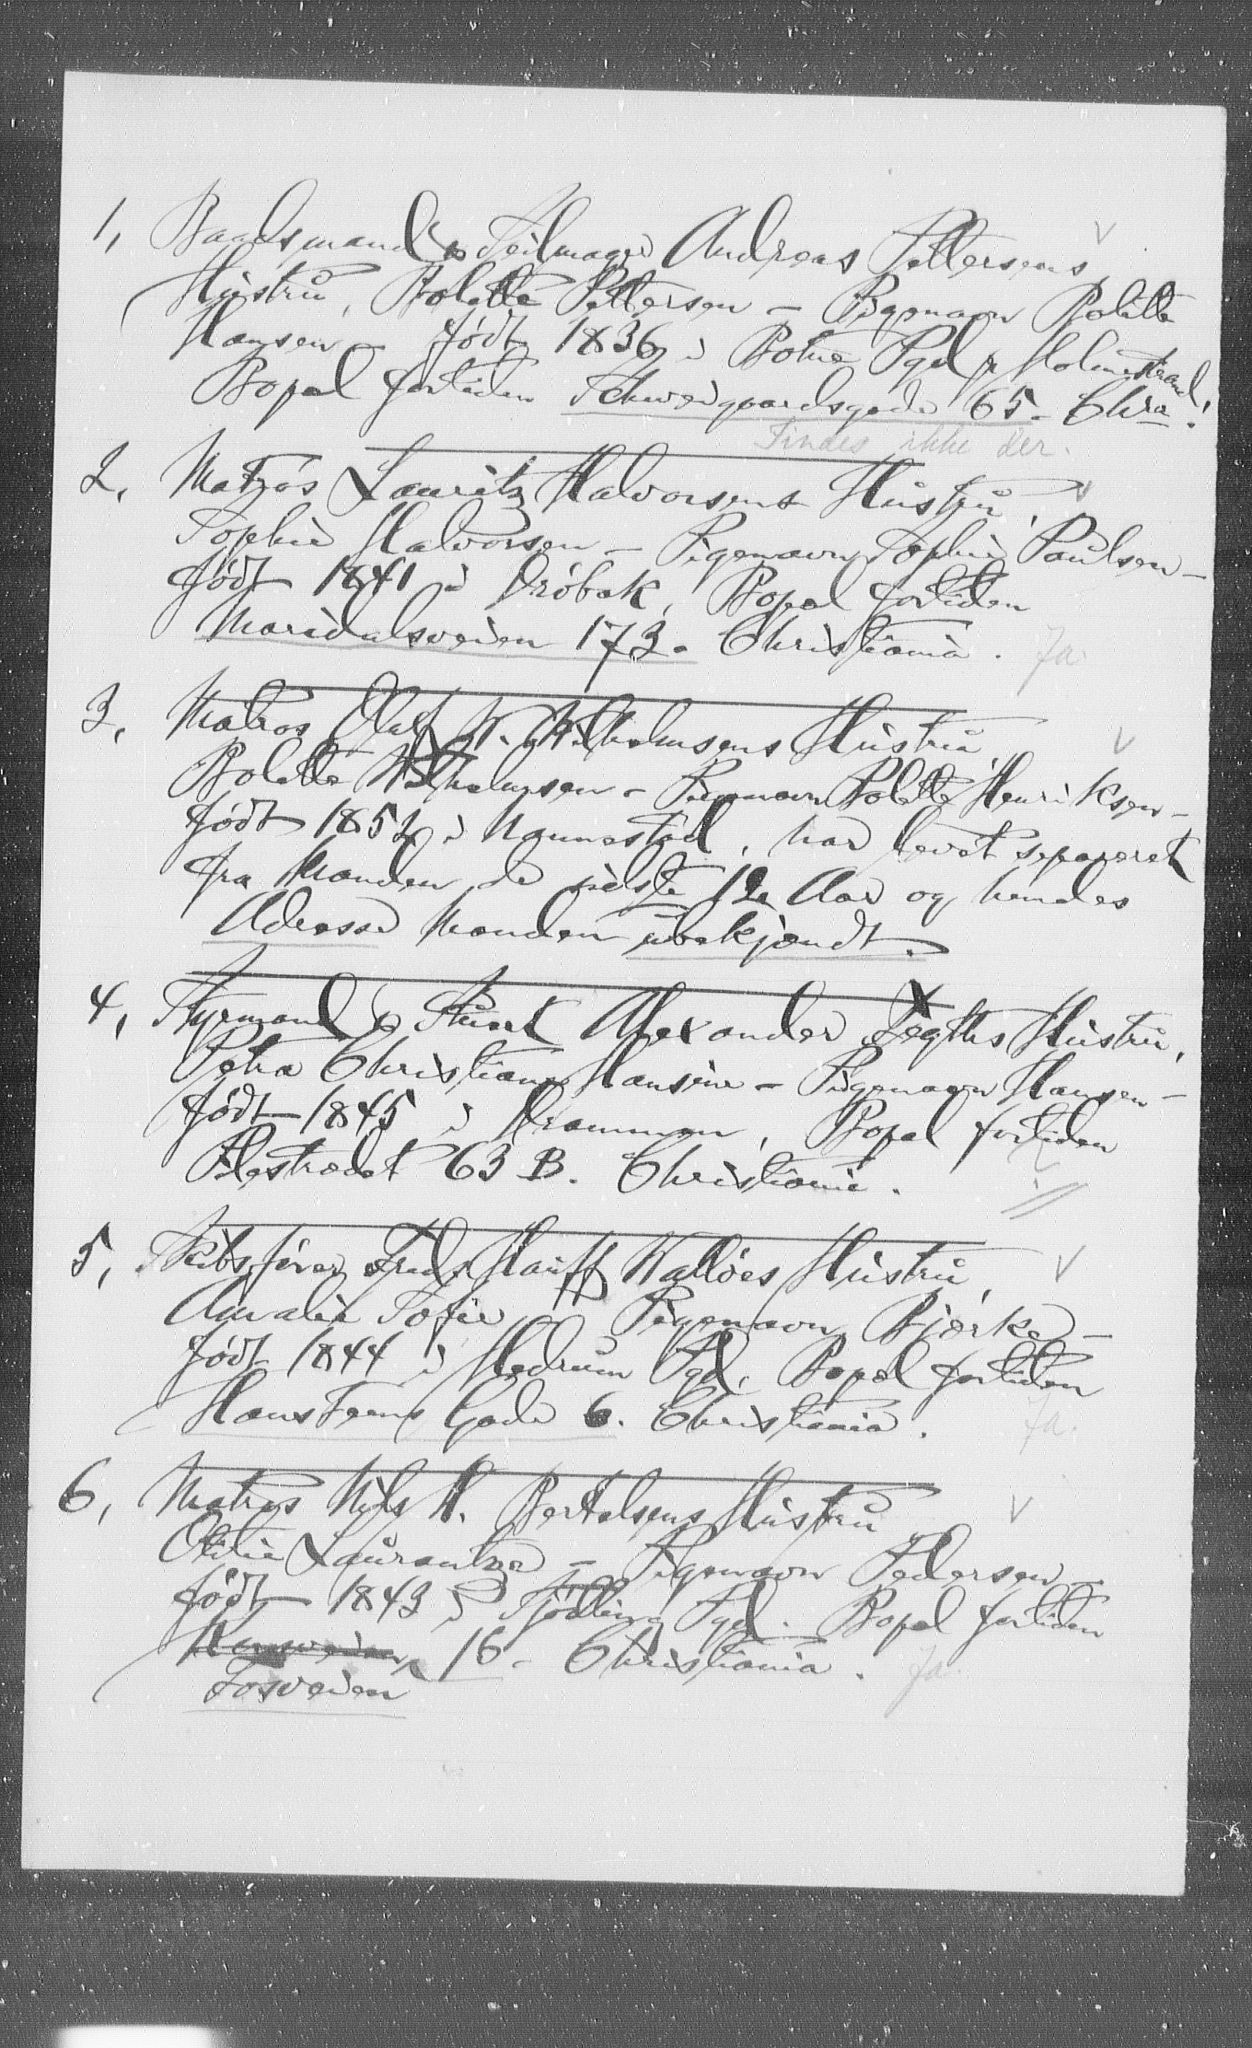 1, Baadsmand & Seilmager Andreas Pettersens
Hustru, Bolette Pettersen – Pigenavn Bolette
Hansen – født 1836 i Botne Pgd pr Holmestrand!
Bopæl fortiden Schweigaardsgade 65 – Chra
Findes ikke der.
2, Matros Lauritz Halvorsens Hustru,
Sophie Halvorsen – Pigenavn Sophie Paulsen –
født 1841 i Drøbak, Bopæl fortiden
Maridalsveien 173 – Christiania. Ja.
3, Matros Olaf W. Wilhelmsens Hustru
Bolette Wilhelmsen – Pigenavn Bolette Henriksen –
født 1852 i Nannestad, har levet separeret
fra Manden de sidste 12 Aar og hendes
Adresse Manden ubekjendt.
4, Styrmand & Stuert Alexander Hustru,
Petra Christiane Hansine – Pigenavn Hansen –
født 1845 i Drammen, Bopæl fortiden
Pilestrædet 63 B. Christiania.
5, Skibsfører Fredr Hauff Walløes Hustru,
Amalie Sofie Pigenavn Bjerke –
født 1844 i Hedrum Pgd, Bopæl fortiden
Hans Gade 6. Christiania. Ja.
6, Matros Nils H. Bertelsens Hustru
Otilie Laurentze – Pigenavn Pedersen –
født 1843 i Tjølling Pgd. Bopæl fortiden
16 – Christiania. Ja.
Fosveien